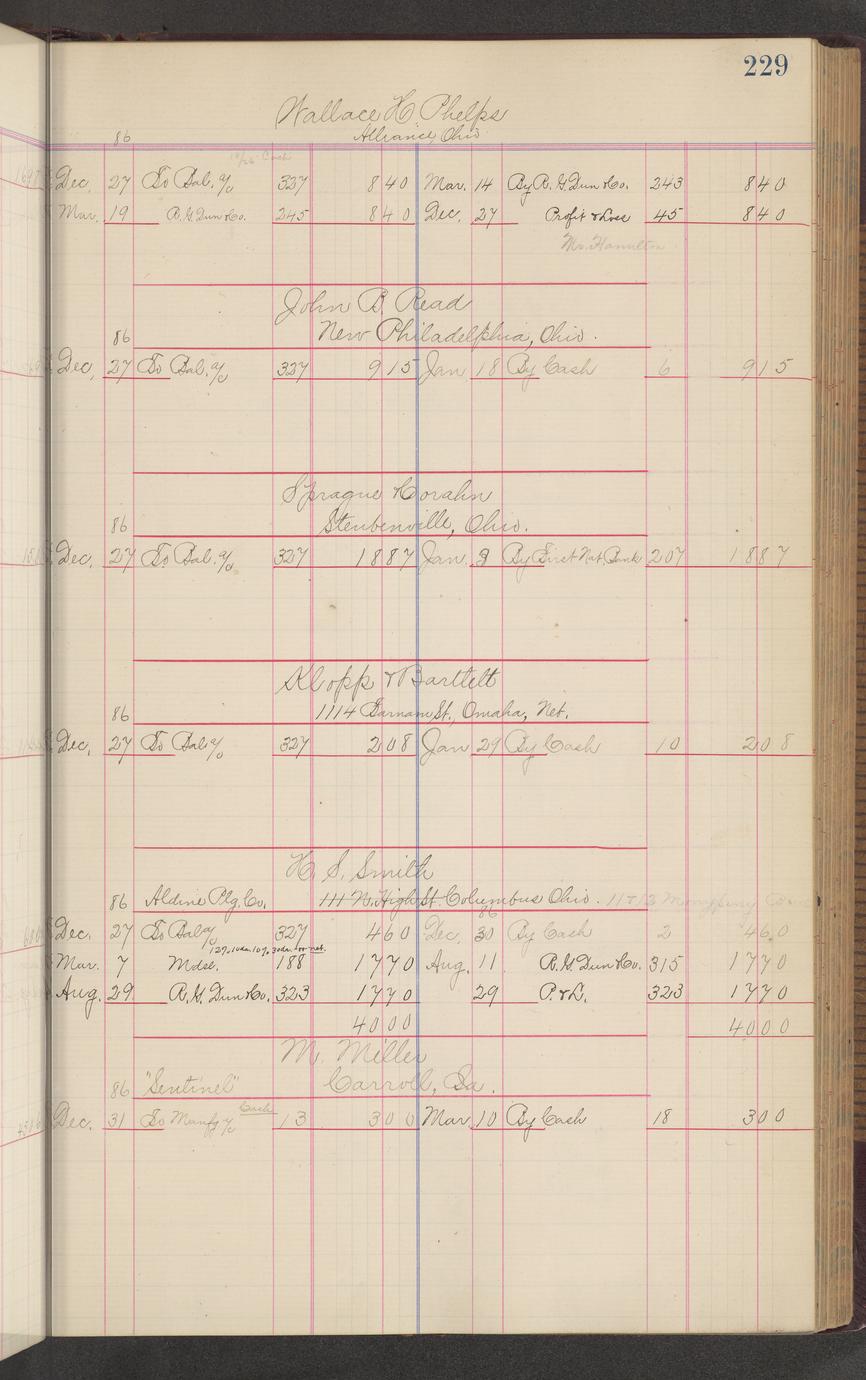 229
Wallace H. Phelps
86 Alliance, Ohio
Cash
Dec. 27 To Bal. a/c 327 8 40 Mar. 14 By R. G. Dun & Co. 243 8 40
Mar. 19 R. G. Dun & Co. 245 8 40 Dec. 27 Profit & Loss 45 8 40
Mr. Hamilton
John B. Read
86 New Philadelphia, Ohio.
Dec, 27 To Bal. a/c 327 9 15 Jan 18 By Cash 6 9 15
Sprague
86 Steubenville, Ohio.
Dec, 27 To Bal. a/c 327 18 87 Jan. 3 By First Nat. Bank 207 18 87
Klopp & Bartlett
86 1114 Farnam St., Omaha, Neb.
Dec, 27 To Bal a/c 327 2 08 Jan 29 By Cash 10 2 08
H. S. Smith
86 Aldine Ptg. Co. 111 N. High St. Columbus Ohio.
86
Dec. 27 To Bal a/c 327 4 60 Dec. 30 By Cash 2 4 60
Mar. 7 Mdse. 188 17 70 Aug. 11 R. G. Dun & Co. 315 17 70
Aug. 29 R. G. Dun & Co. 323 17 70 29 P. & L. 323 17 70
40 00 40 00
M. Miller
86 "Sentinel" Carroll, Ia.
Cash
Dec. 31 To Manfg a/c 13 3 00 Mar 10 By Cash 18 3 00